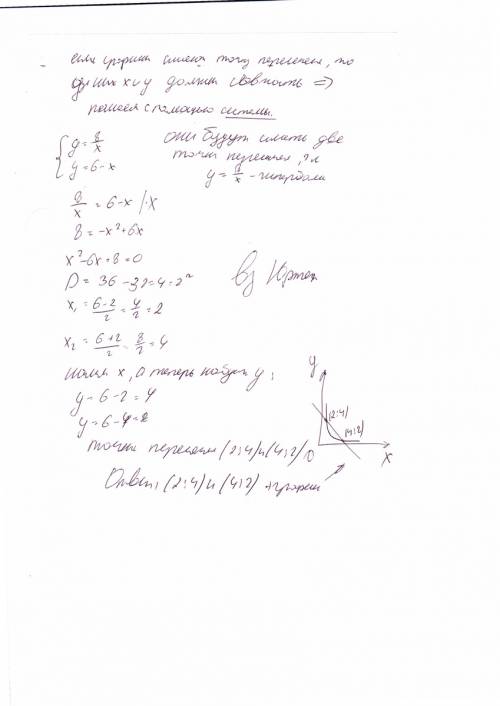 если графики имеют точку пересечения, то
для них x и y должны совпасть ⇒
решаем с помощью системы.
{ y = 8/x
y = 6-x
они будут иметь две
точки пересечения, т.к
y = 8/x - гипербола
8/x = 6-x |·x
8 = -x²+6x
x²-6x+8=0
D = 36-32=4=2²
x₁ = (6-2)/2 = 4/2 = 2
x₂ = (6+2)/2 = 8/2 = 4
нашли x, а теперь найдём y:
y = 6-2 = 4
y = 6-4 = 2
точки пересечения (2;4) и (4;2)
Ответ: (2;4) и (4;2) + график
y
(2;4)
(4;2)
0
x